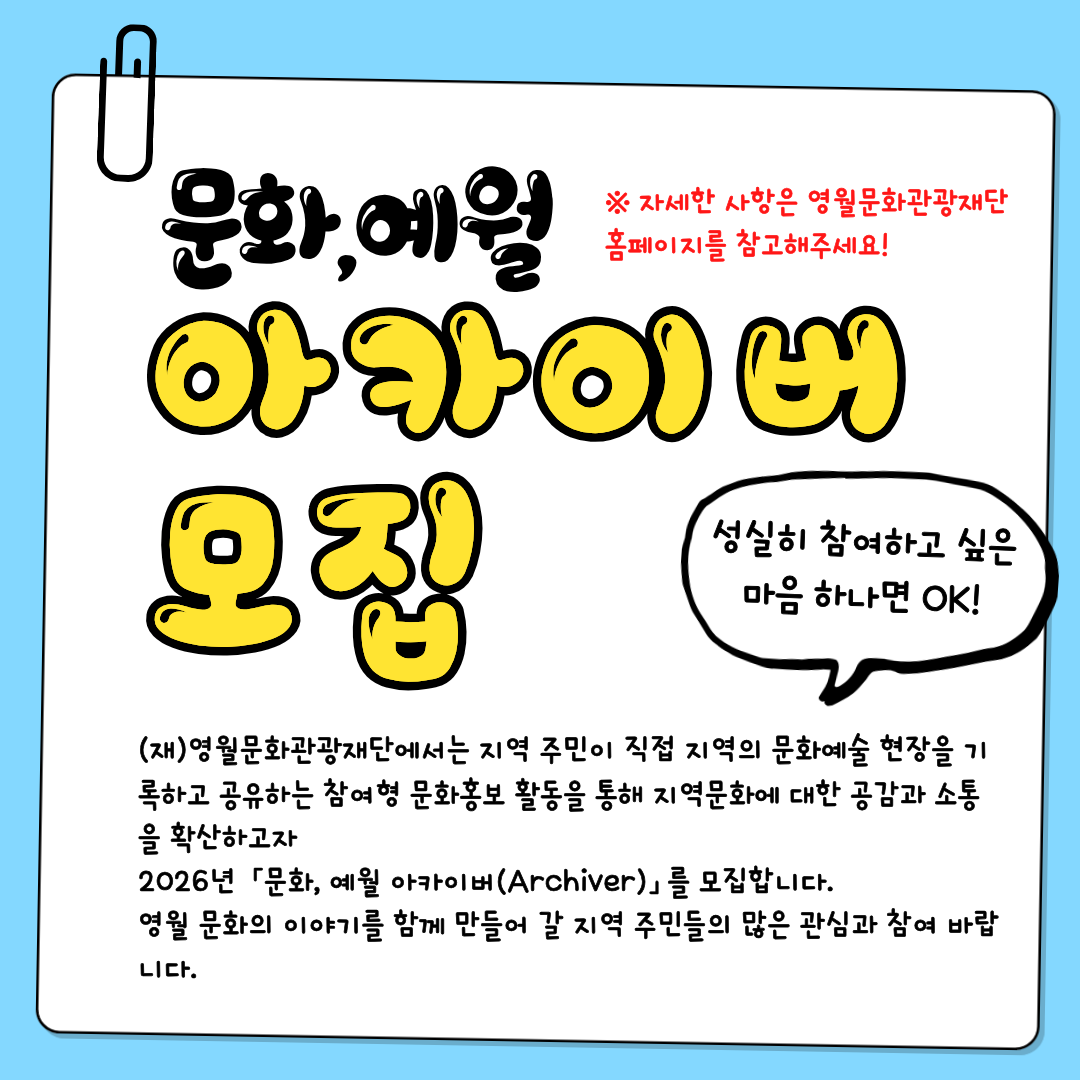 문화,예월
※ 자세한 사항은 영월문화관광재단
홈페이지를 참고해주세요!
아카이버
모집
성실히 참여하고 싶은
마음 하나면 OK!
(재)영월문화관광재단에서는 지역 주민이 직접 지역의 문화예술 현장을 기
록하고 공유하는 참여형 문화홍보 활동을 통해 지역문화에 대한 공감과 소통
을 확산하고자
2026년 「문화, 예월 아카이버(Archiver)」를 모집합니다.
영월 문화의 이야기를 함께 만들어 갈 지역 주민들의 많은 관심과 참여 바랍
니다.